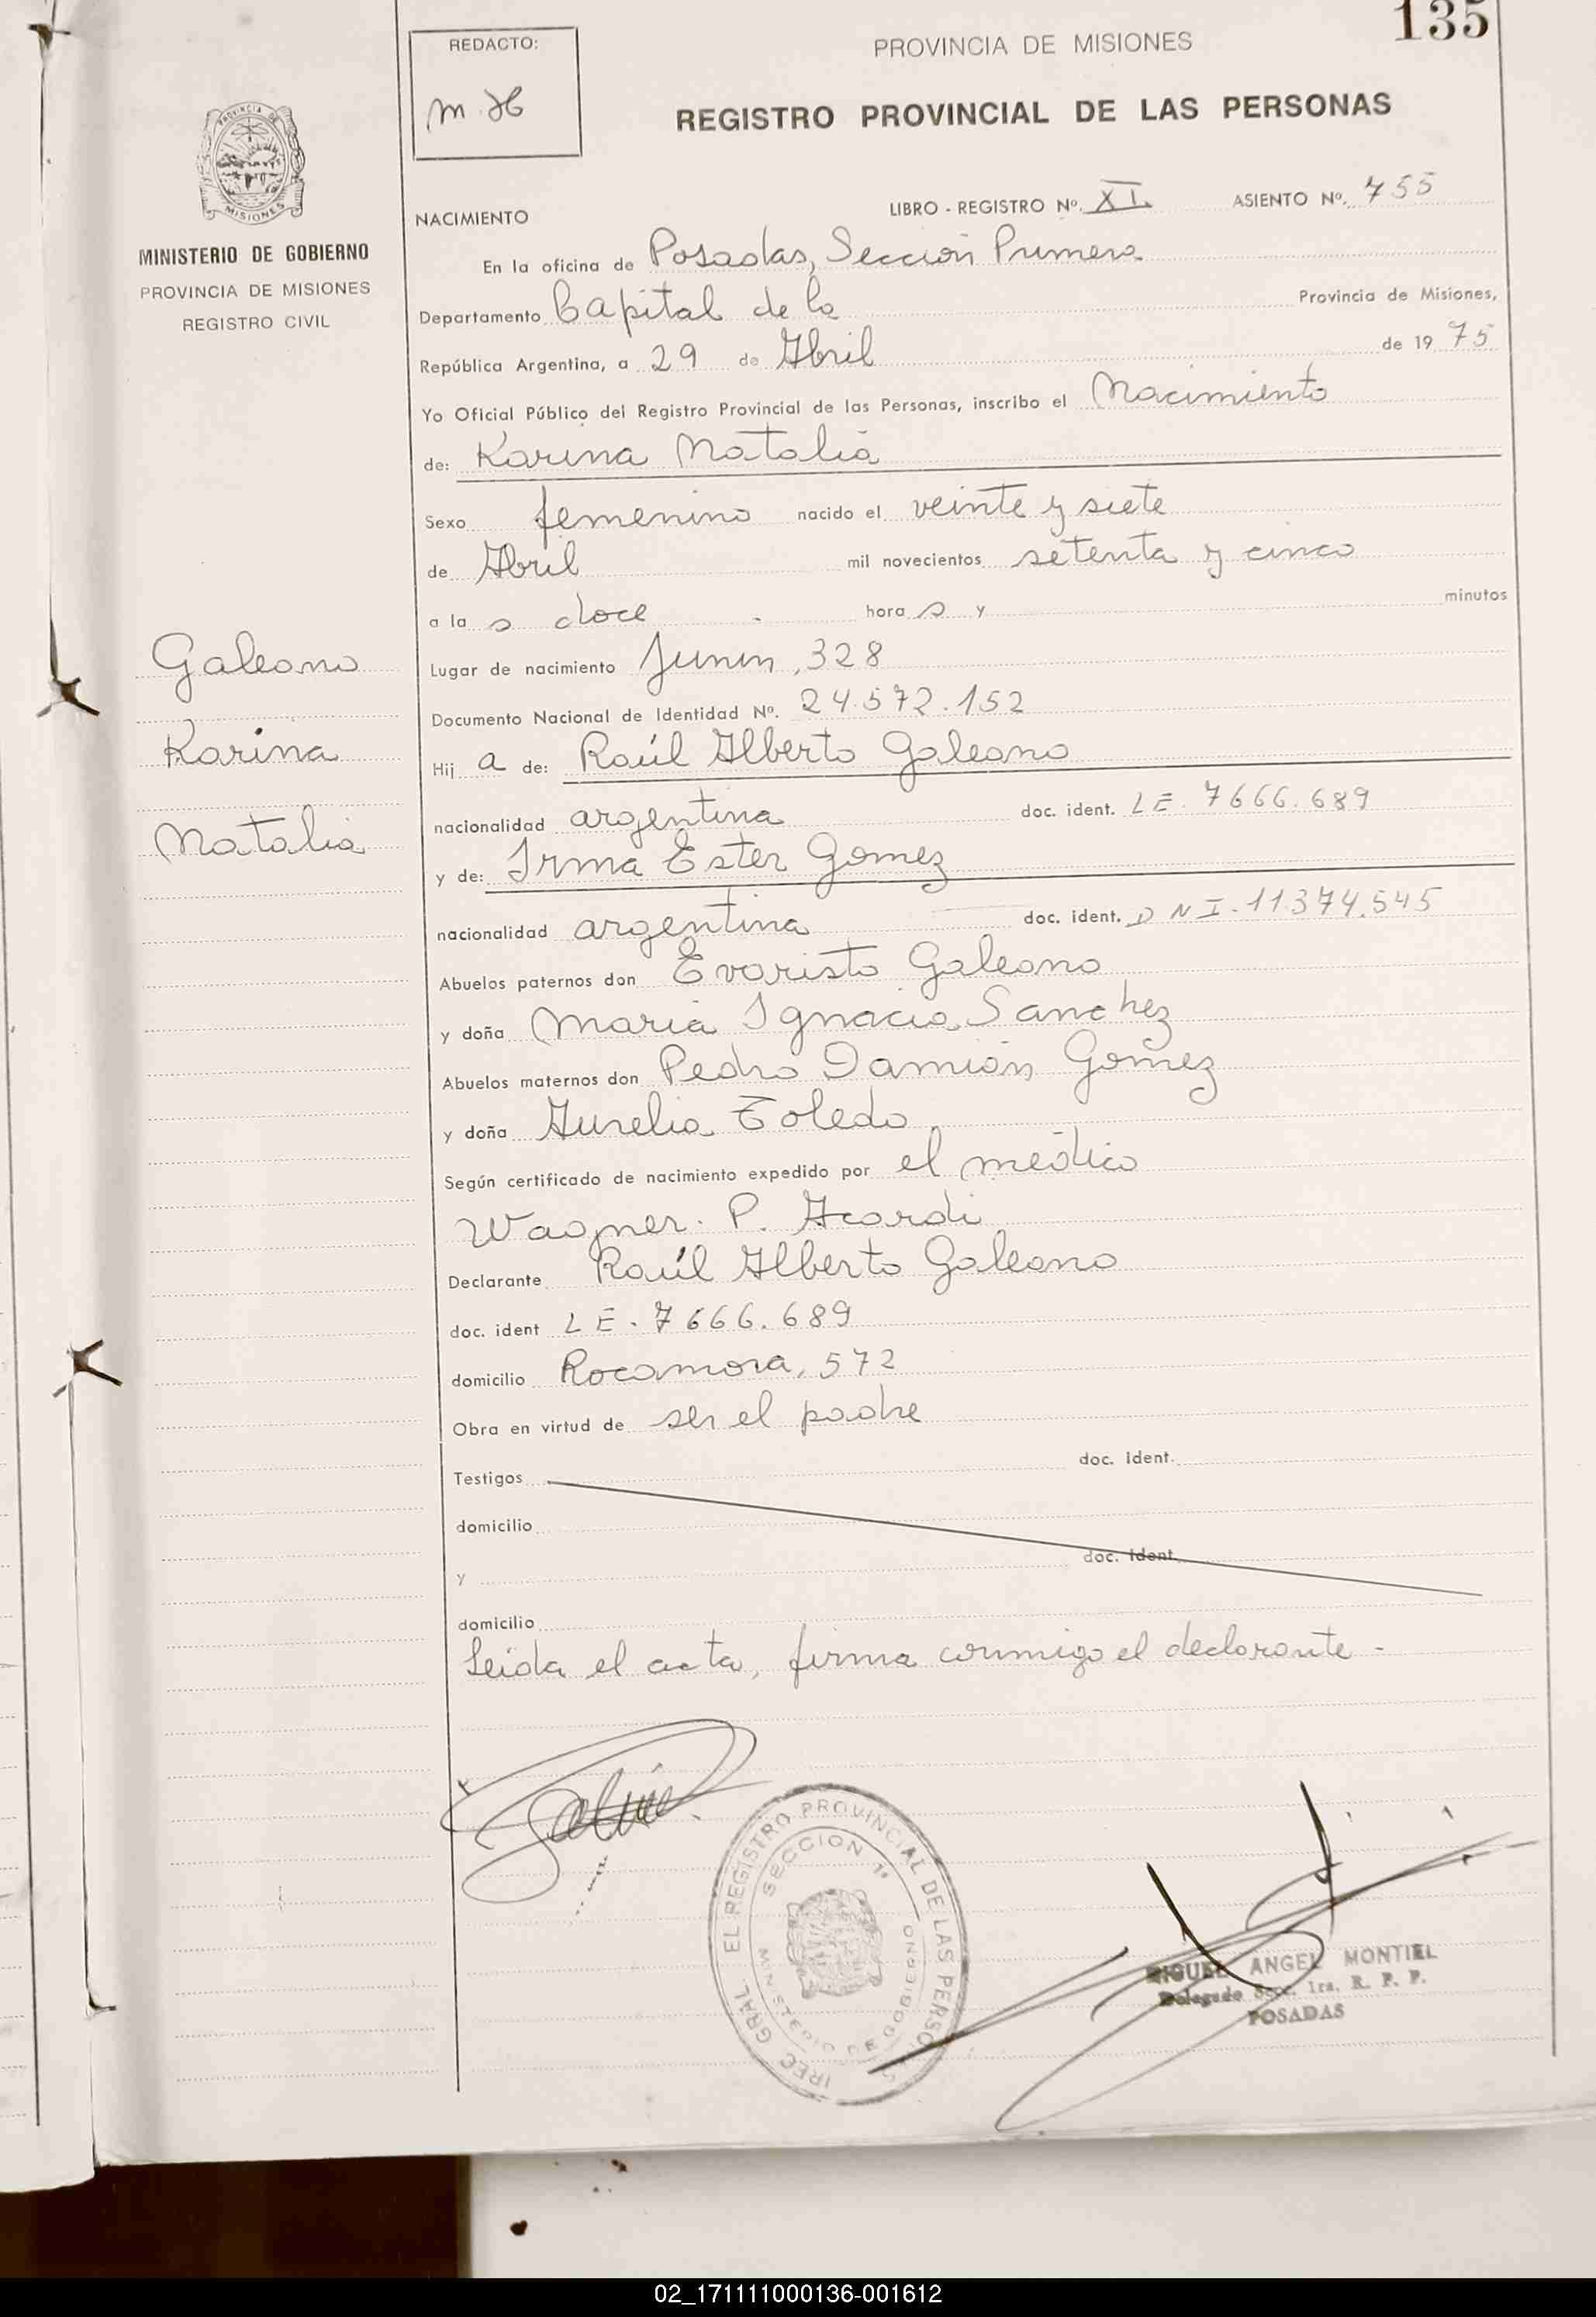 135
REDACTO:
PROVINCIA DE MISIONES
REGISTRO PROVINCIAL DE LAS PERSONAS
PROVINCIA DE
MISIONES
MINISTERIO DE GOBIERNO
PROVINCIA DE MISIONES
REGISTRO CIVIL
NACIMIENTO
LIBRO - REGISTRO Nº. XI. ASIENTO Nº. 755
En la oficina de Posadas, Sección Primera
Departamento Capital de la Provincia de Misiones,
República Argentina, a 29 de Abril de 19 75
Yo Oficial Público del Registro Provincial de las Personas, inscribo el Nacimiento
de: Karina Natalia
Sexo femenino nacido el veinte y siete
de Abril mil novecientos setenta y cinco
a la s doce hora s y minutos
Galeano
Karina
Natalia
Lugar de nacimiento Junin, 328
Documento Nacional de Identidad Nº. 24.572.152
Hij a de: Raúl Alberto Galeano
nacionalidad argentina doc. ident. LE. 7666.689
y de: Irma Ester Gomez
nacionalidad argentina doc. ident. DNI.11.374.545
Abuelos paternos don Evaristo Galeano
y doña Maria Ignacia Sanchez
Abuelos maternos don Pedro Damión Gomez
y doña Aurelia Toledo
Según certificado de nacimiento expedido por el médico
Wagner. P. Acardi
Declarante Raúl Alberto Galeano
doc. ident LE. 7666.689
domicilio Rocamora, 572
Obra en virtud de ser el padre
Testigos doc. ident.
domicilio
y doc. ident.
domicilio
Leida el acta, firma conmigo el declarante -
EL REGISTRO PROVINCIAL DE LAS PERSO
SECCION 1ª
MINISTERIO DE GOBIERNO
GRAL
MIGUEL ANGEL MONTIEL
Delegado Secc. 1ra. R. P. P.
POSADAS
02_171111000136-001612